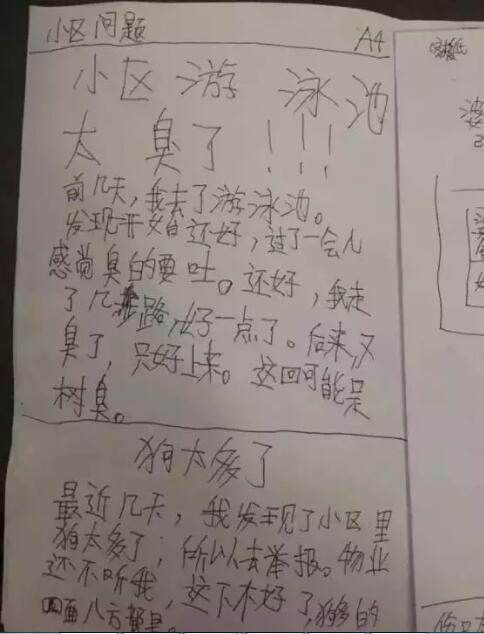 小区问题
A4
小区游泳池
太臭了!!!
前几天,我去了游泳池。
发现开始还好,过了一会儿
感觉臭的要吐。还好,我走
了几步路,好一点了。后来,又
臭了,只好上来。这回可能是
树臭。
狗太多了
最近几天,我发现了小区里
狗太多了,所以去举报。物业
还不听我,这下不好了,狗的
四面八方都是。
婆